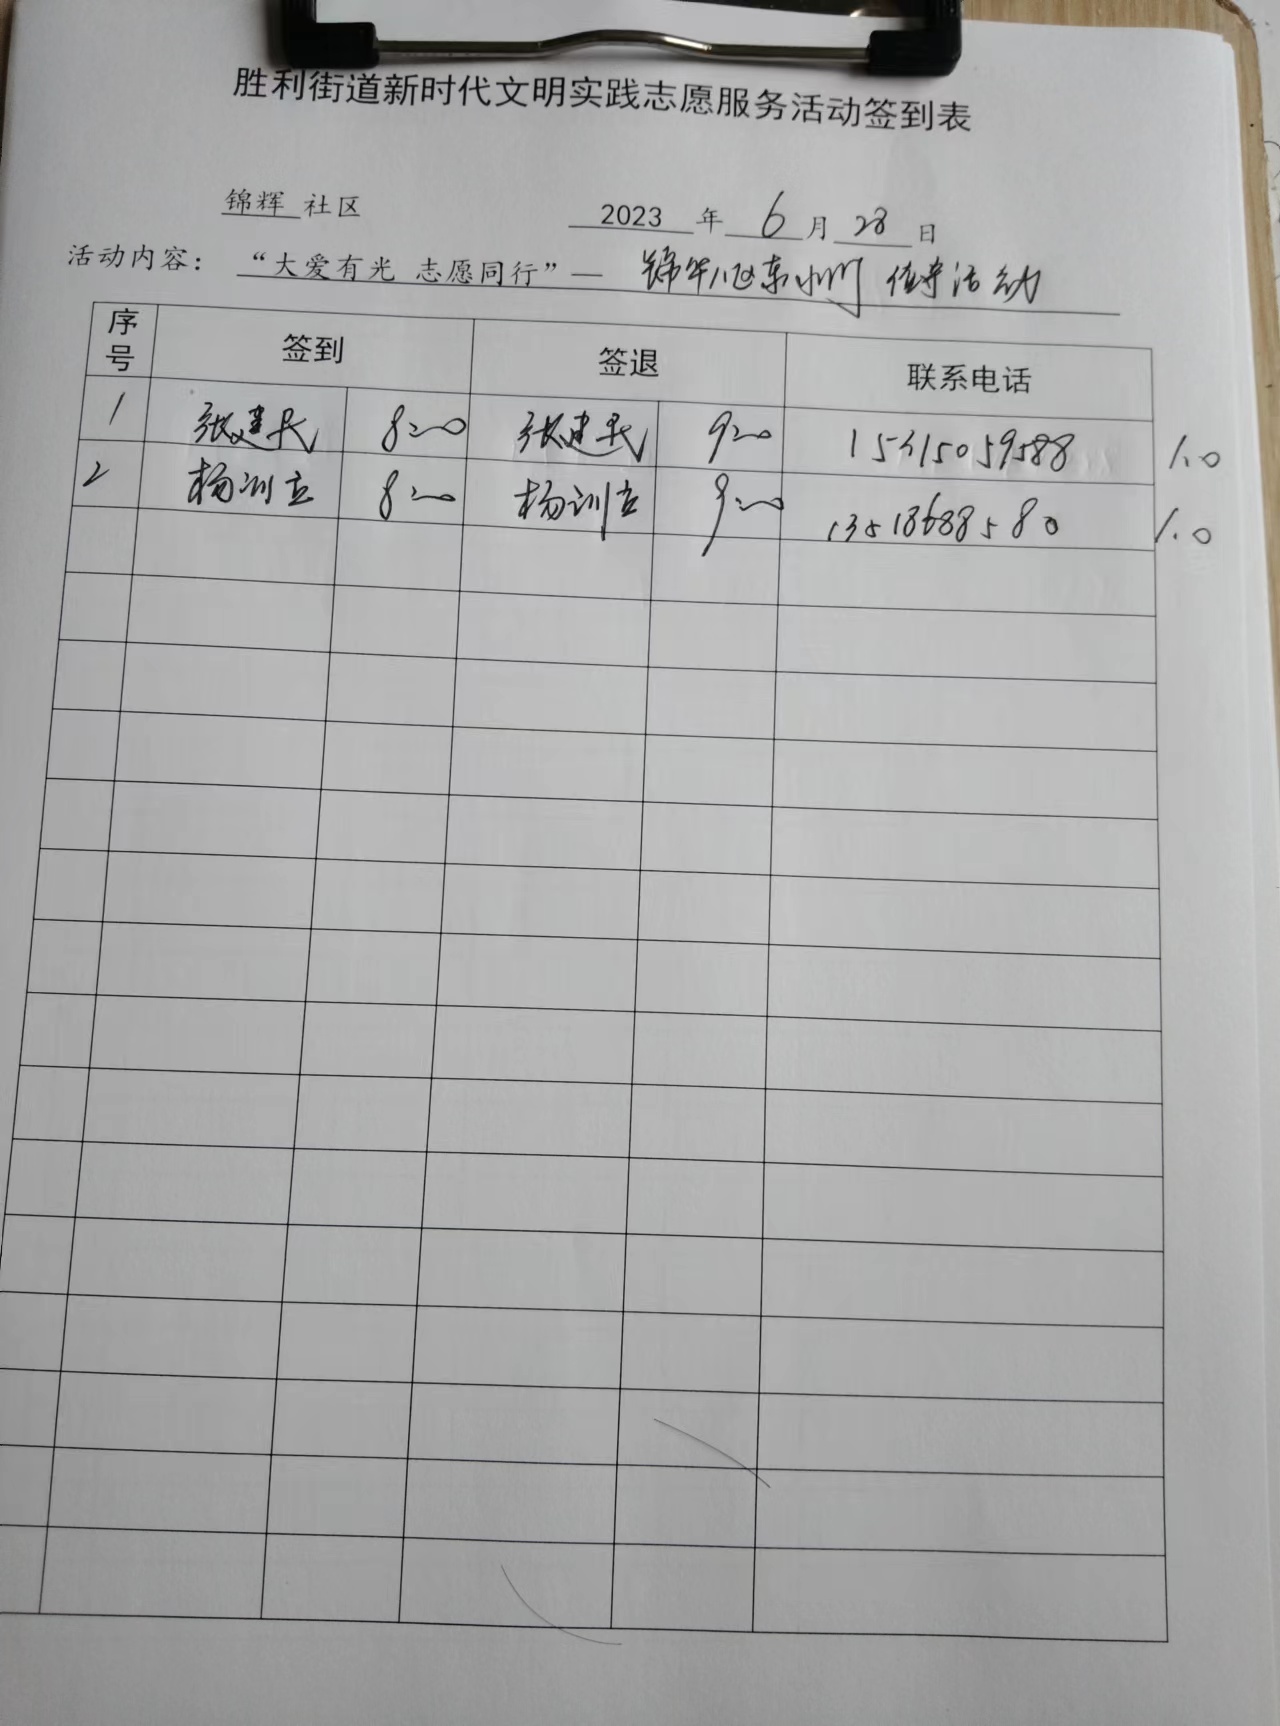 胜利街道新时代文明实践志愿服务活动签到表
锦辉 社区 2023 年 6 月 28 日
活动内容： “大爱有光 志愿同行”— 锦华八区东小门 值守活动
序号 签到 签退 联系电话
1 张建民 8:00 张建民 9:00 15315059588 1.0
2 杨训立 8:00 杨训立 9:00 13518688580 1.0